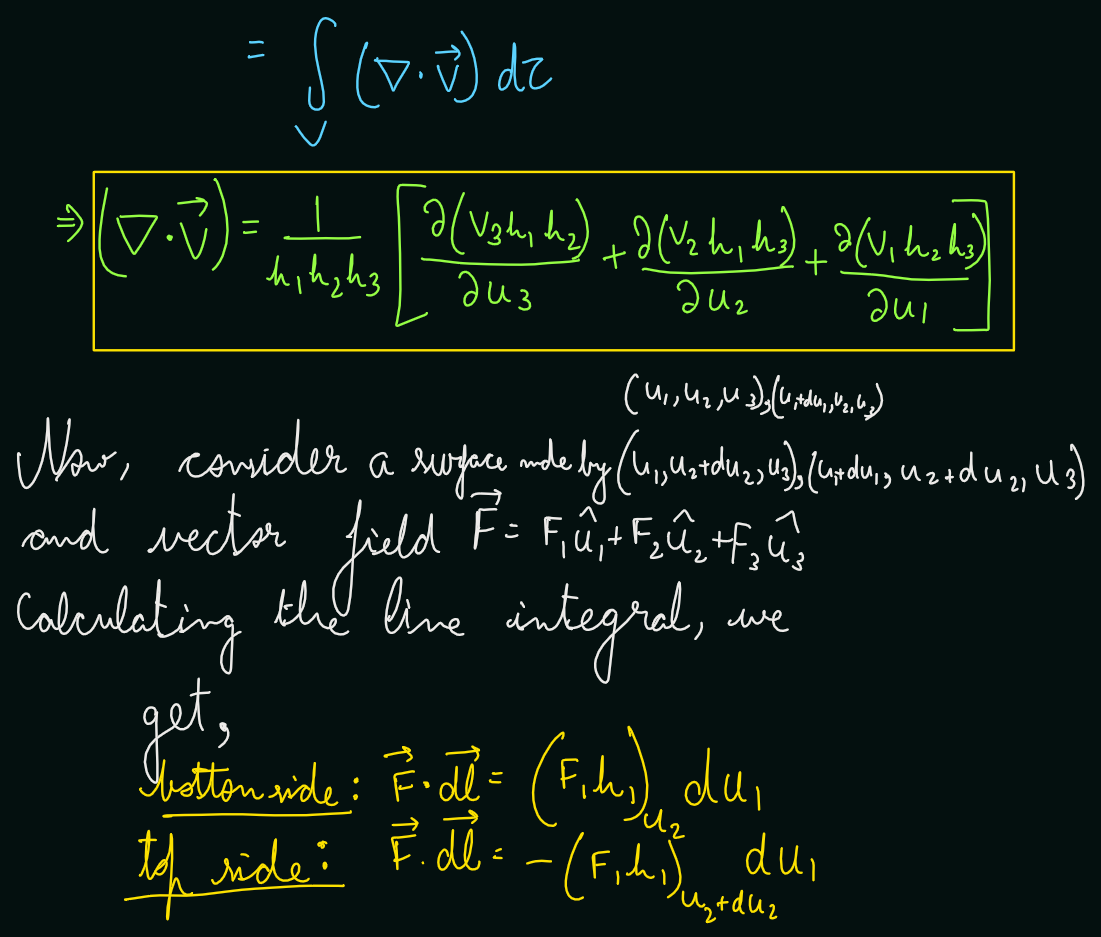 = ∫_V (∇·V⃗) dτ
⇒ (∇·V⃗) = 1/(h₁h₂h₃) [ ∂(V₃h₁h₂)/∂u₃ + ∂(V₂h₁h₃)/∂u₂ + ∂(V₁h₂h₃)/∂u₁ ]
(u₁,u₂,u₃),(u₁+du₁,u₂,u₃)
Now, consider a surface made by (u₁,u₂+du₂,u₃),(u₁+du₁,u₂+du₂,u₃)
and vector field F⃗ = F₁û₁+F₂û₂+F₃û₃
Calculating the line integral, we
get,
bottom side: F⃗·dl⃗ = (F₁h₁)_u₂ du₁
top side: F⃗·dl⃗ = -(F₁h₁)_u₂+du₂ du₁